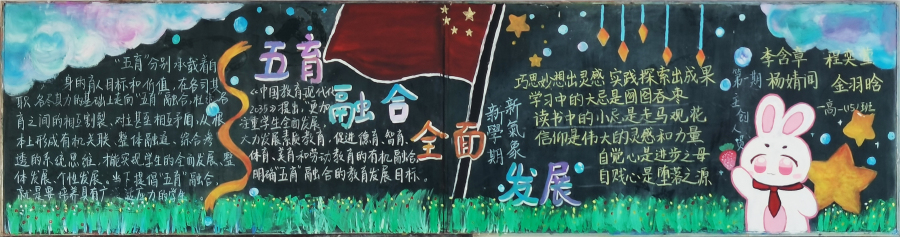 "五育"分别承载着自
身的育人目标和价值,在各司其
职、各尽其力的基础上走向"五育"融合,
育之间的相互割裂、对立甚至相互矛盾,从根
本上形成有机关联、整体融通、综合
透的系统思维,才能实现学生的全面发展、整
体发展、个性发展。当下提倡"五育"融合
就是要培养具有
五育
融合
全面
发展
《中国教育现代化
2035》提出,"更加
注重学生全面发展,
大力发展素质教育,促进德育、智育、
体育、美育和劳动教育的有机融合,
明确五育"融合的教育发展目标。
新學期
新氣象
巧思妙想出灵感,实践探索出成果
学习中的大忌是囫囵吞枣
读书中的小忌是走马观花
信仰是伟大的灵感和力量
自觉心是进步之母
自贱心是堕落之源
第一期
主创人员
李含章
杨婧闻 金羽晗
高一(15)班